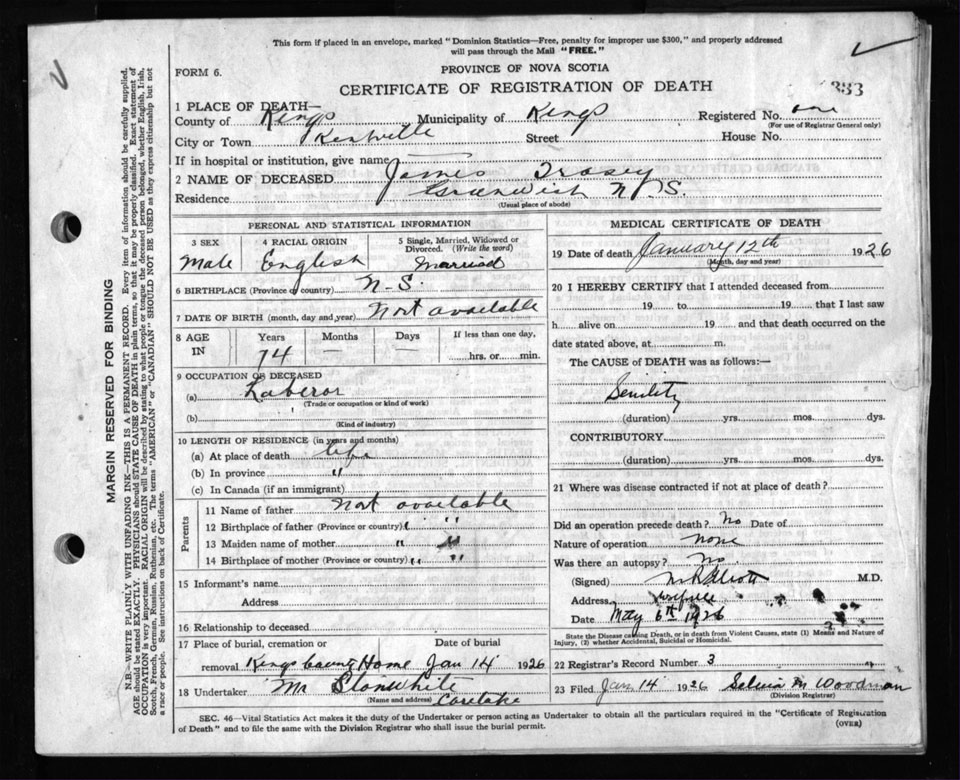 This form if placed in an envelope, marked "Dominion Statistics—Free, penalty for improper use $300," and properly addressed
will pass through the Mail "FREE."
FORM 6.
PROVINCE OF NOVA SCOTIA
CERTIFICATE OF REGISTRATION OF DEATH
333
1 PLACE OF DEATH—
County of Kings Municipality of Kings Registered No. one
(For use of Registrar General only)
City or Town Kentville Street House No.
If in hospital or institution, give name
2 NAME OF DECEASED James Trasey
Residence Greenwich N.S.
(Usual place of abode)
MARGIN RESERVED FOR BINDING
N.B.—WRITE PLAINLY WITH UNFADING INK—THIS IS A PERMANENT RECORD. Every item of information should be carefully supplied.
AGE should be stated EXACTLY. PHYSICIANS should STATE CAUSE OF DEATH in plain terms, so that it may be properly classified. Exact statement of
OCCUPATION is very important. RACIAL ORIGIN will be described by stating to what people or tongue the deceased person belonged, whether English, Irish,
Scotch, French, German, Russian, Ruthenian, etc. The terms "AMERICAN" or "CANADIAN" SHOULD NOT BE USED as they express citizenship but not
a race or people. See instructions on back of Certificate.
PERSONAL AND STATISTICAL INFORMATION
3 SEX
Male
4 RACIAL ORIGIN
English
5 Single, Married, Widowed or
Divorced. (Write the word)
Married
6 BIRTHPLACE (Province or country) N.S.
7 DATE OF BIRTH (month, day and year) Not available
8 AGE
IN
Years
74
Months
—
Days
—
If less than one day,
hrs. or min.
9 OCCUPATION OF DECEASED
(a) Laberor
(Trade or occupation or kind of work)
(b)
(Kind of industry)
10 LENGTH OF RESIDENCE (in years and months)
(a) At place of death life
(b) In province "
(c) In Canada (if an immigrant)
Parents
11 Name of father not available
12 Birthplace of father (Province or country) " "
13 Maiden name of mother " "
14 Birthplace of mother (Province or country) " "
15 Informant's name
Address
16 Relationship to deceased
17 Place of burial, cremation or Date of burial
removal Kings County Home Jan 14 1926
18 Undertaker Mr Stonwhite
(Name and address)
MEDICAL CERTIFICATE OF DEATH
19 Date of death January 12th 1926
(Month, day and year)
20 I HEREBY CERTIFY that I attended deceased from
19 to 19 that I last saw
h alive on 19 and that death occurred on the
date stated above, at m.
The CAUSE of DEATH was as follows:—
Senility
(duration) yrs. mos. dys.
CONTRIBUTORY
(duration) yrs. mos. dys.
21 Where was disease contracted if not at place of death?
Did an operation precede death? No Date of
Nature of operation none
Was there an autopsy? No
(Signed) M.D.
Address
Date May 6th 1926
State the Disease causing Death, or in death from Violent Causes, state (1) Means and Nature of
Injury, (2) whether Accidental, Suicidal or Homicidal.
22 Registrar's Record Number 3
23 Filed Jan 14 1926 Selvin M Woodman
(Division Registrar)
SEC. 46—Vital Statistics Act makes it the duty of the Undertaker or person acting as Undertaker to obtain all the particulars required in the "Certificate of Registration
of Death" and to file the same with the Division Registrar who shall issue the burial permit.
(OVER)